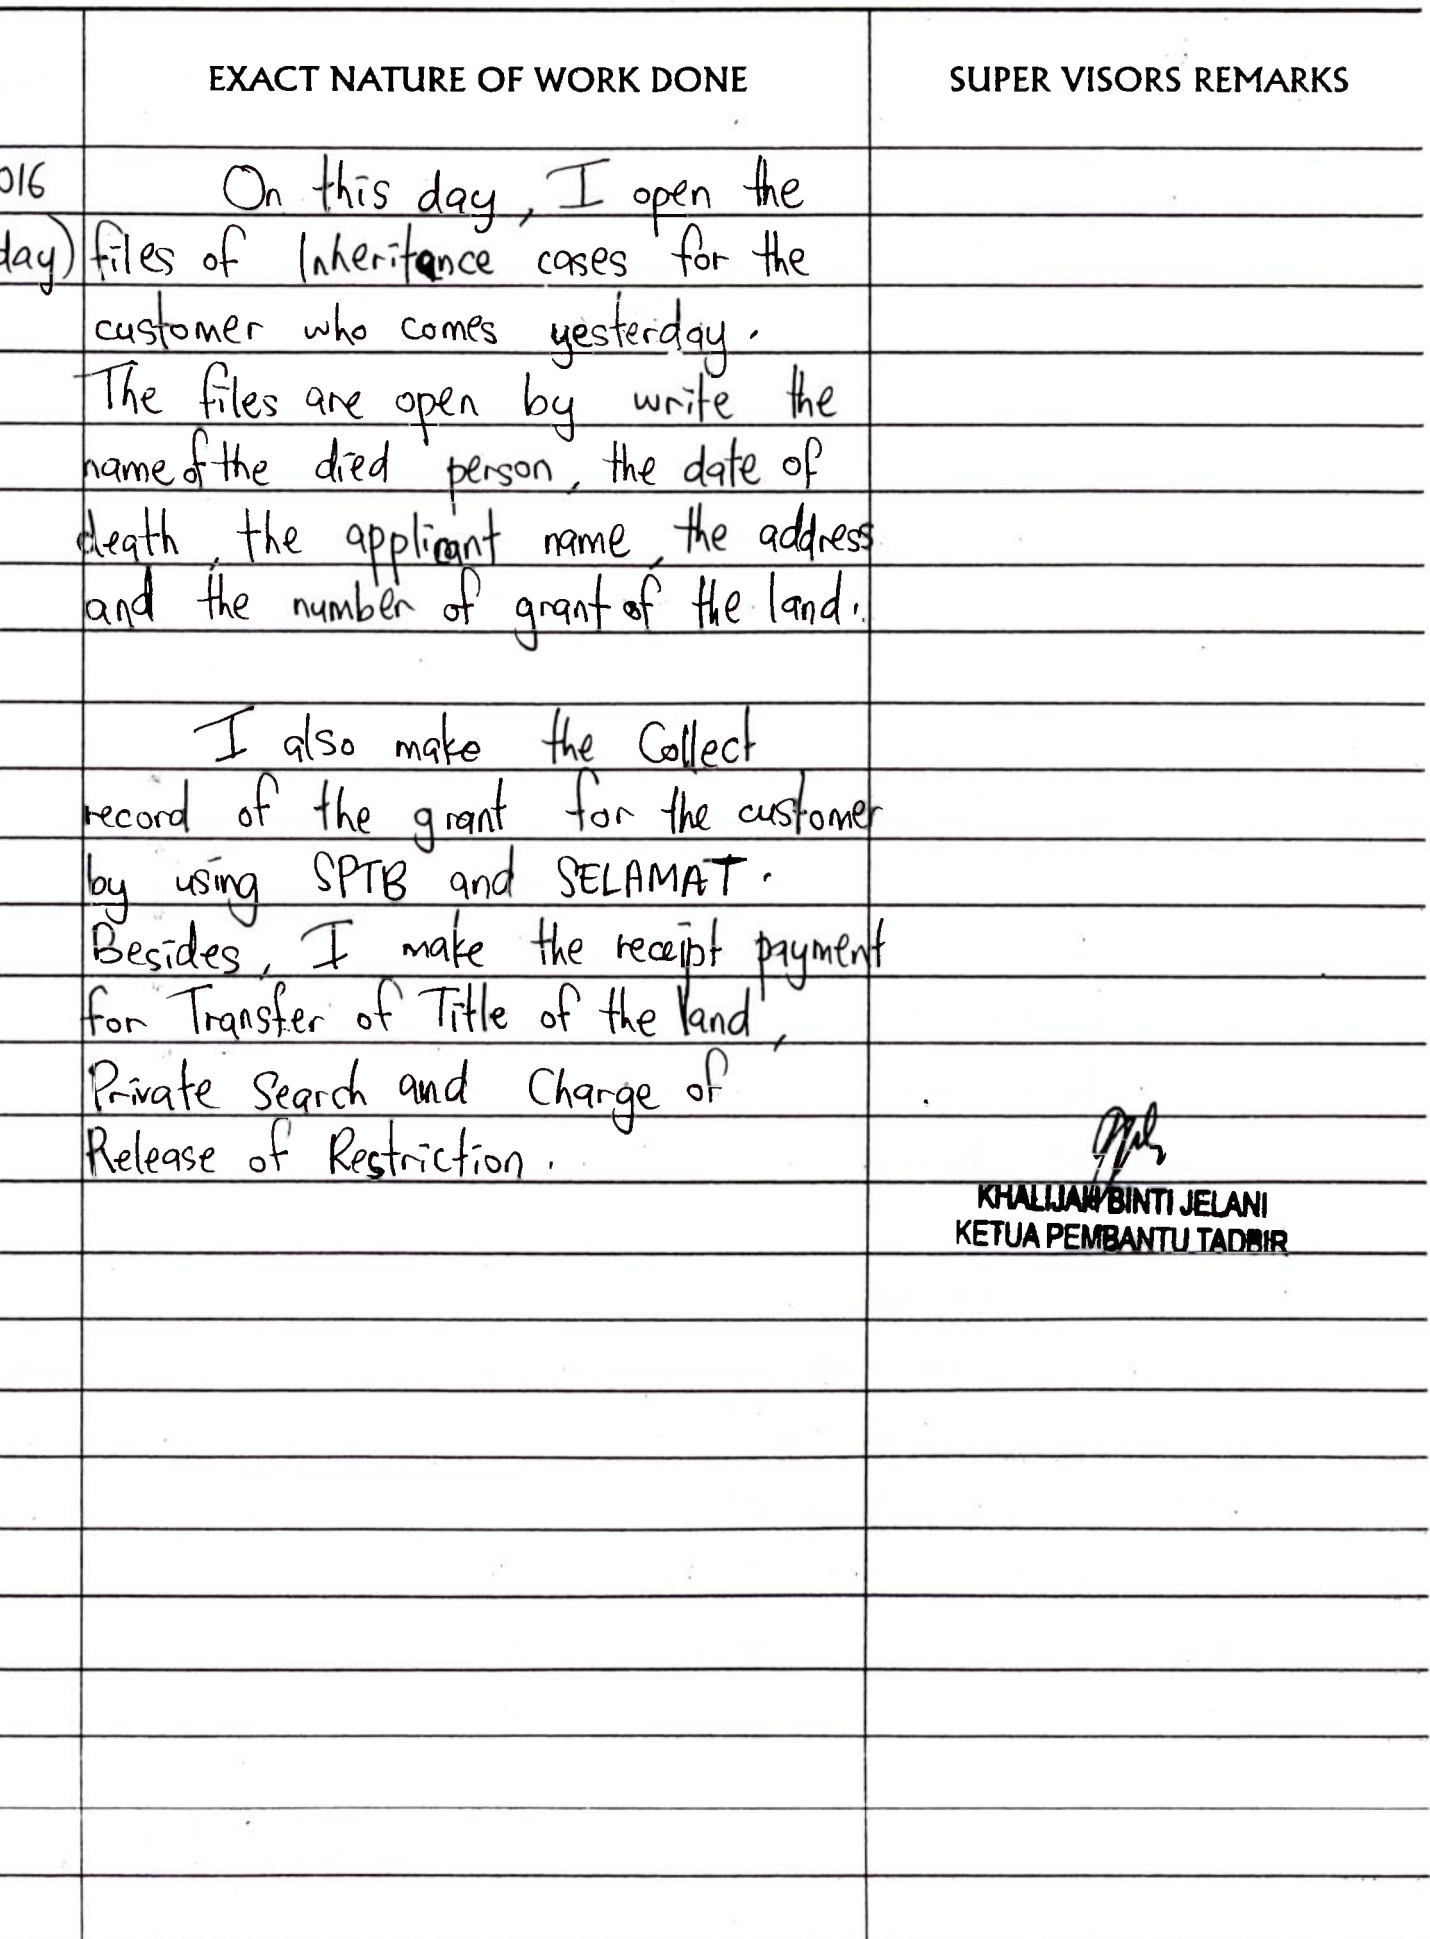 EXACT NATURE OF WORK DONE SUPER VISORS REMARKS
016 On this day, I open the
day) files of Inheritance cases for the
customer who comes yesterday.
The files are open by write the
name of the died person, the date of
death, the applicant name, the address
and the number of grant of the land.
I also make the Collect
record of the grant for the customer
by using SPTB and SELAMAT.
Besides, I make the receipt payment
for Transfer of Title of the land,
Private Search and Charge of
Release of Restriction.
KHALIJAH BINTI JELANI
KETUA PEMBANTU TADBIR